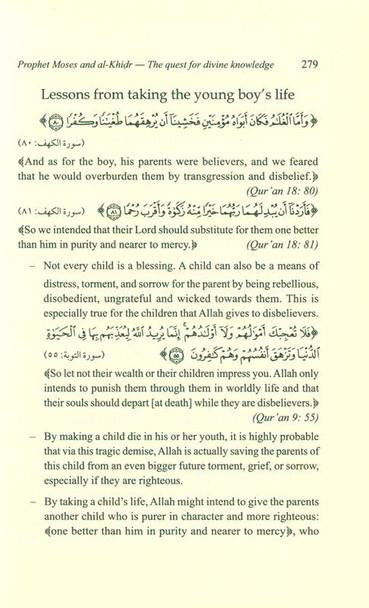 Prophet Moses and al-Khiḍr — The quest for divine knowledge 279
Lessons from taking the young boy's life
﴿ وَأَمَّا ٱلْغُلَـٰمُ فَكَانَ أَبَوَاهُ مُؤْمِنَيْنِ فَخَشِينَآ أَن يُرْهِقَهُمَا طُغْيَـٰنًا وَكُفْرًا ۝٨٠ ﴾
(سورة الكهف: ٨٠)
﴾And as for the boy, his parents were believers, and we feared
that he would overburden them by transgression and disbelief.﴿
(Qur'an 18: 80)
﴿ فَأَرَدْنَآ أَن يُبْدِلَهُمَا رَبُّهُمَا خَيْرًا مِّنْهُ زَكَوٰةً وَأَقْرَبَ رُحْمًا ۝٨١ ﴾ (سورة الكهف: ٨١)
﴾So we intended that their Lord should substitute for them one better
than him in purity and nearer to mercy.﴿ (Qur'an 18: 81)
– Not every child is a blessing. A child can also be a means of
distress, torment, and sorrow for the parent by being rebellious,
disobedient, ungrateful and wicked towards them. This is
especially true for the children that Allah gives to disbelievers.
﴿ فَلَا تُعْجِبْكَ أَمْوَٰلُهُمْ وَلَآ أَوْلَـٰدُهُمْ ۚ إِنَّمَا يُرِيدُ ٱللَّهُ لِيُعَذِّبَهُم بِهَا فِى ٱلْحَيَوٰةِ
ٱلدُّنْيَا وَتَزْهَقَ أَنفُسُهُمْ وَهُمْ كَـٰفِرُونَ ۝٥٥ ﴾ (سورة التوبة: ٥٥)
﴾So let not their wealth or their children impress you. Allah only
intends to punish them through them in worldly life and that
their souls should depart [at death] while they are disbelievers.﴿
(Qur'an 9: 55)
– By making a child die in his or her youth, it is highly probable
that via this tragic demise, Allah is actually saving the parents of
this child from an even bigger future torment, grief, or sorrow,
especially if they are righteous.
– By taking a child's life, Allah might intend to give the parents
another child who is purer in character and more righteous:
﴾one better than him in purity and nearer to mercy﴿, who